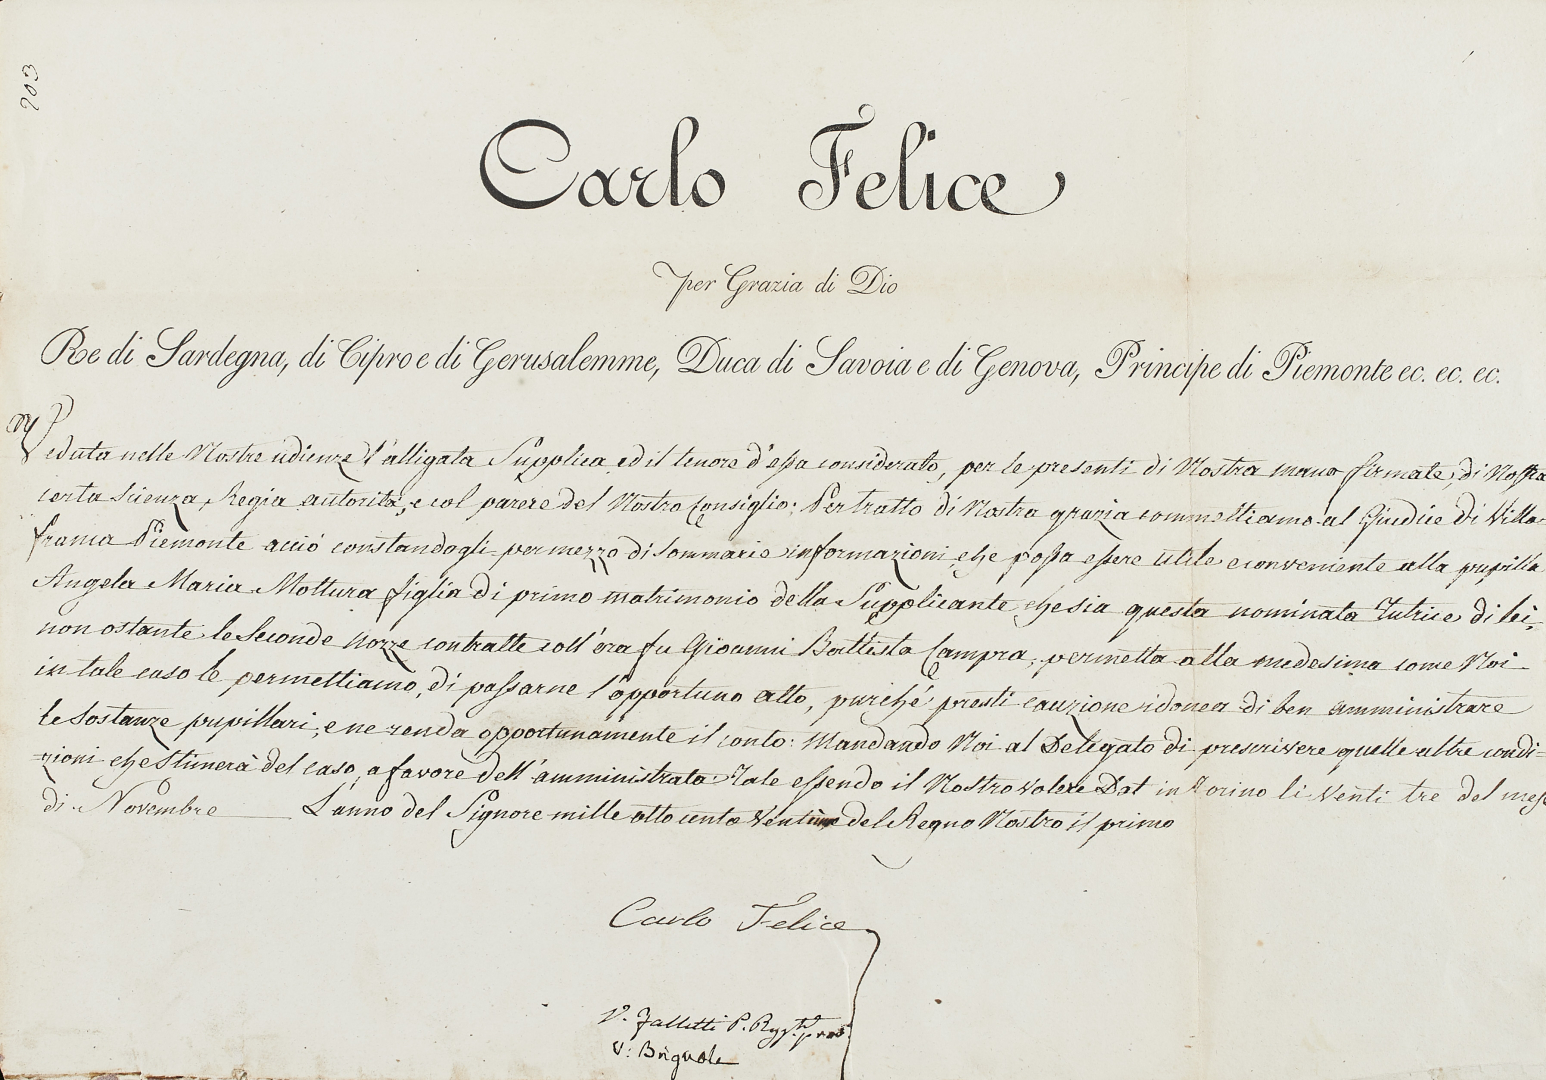 703
Carlo Felice
per Grazia di Dio
Re di Sardegna, di Cipro e di Gerusalemme, Duca di Savoia e di Genova, Principe di Piemonte ec. ec. ec.
Veduta nelle Nostre udienze l'alligata Supplica, ed il tenore d'essa considerato, per le presenti di Nostra mano firmate, di Nostra
certa Scienza, Regia autorità, e col parere del Nostro Consiglio: Per tratto di Nostra grazia commettiamo al Giudice di Villa-
franca Piemonte acciò constandogli per mezzo di sommarie informazioni, che possa essere utile e conveniente alla pupilla
Angela Maria Mottura figlia di primo matrimonio della Supplicante, che sia questa nominata Tutrice di lei,
non ostante le Seconde Nozze contratte coll'ora fu Giovanni Battista Campra, permetta alla medesima come Noi
in tale caso le permettiamo, di passarne l'opportuno atto, purché presti cauzione idonea di ben amministrare
le Sostanze pupillari, e ne renda opportunamente il conto: Mandando Noi al Delegato di prescrivere quelle altre condi-
-zioni che Stimerà del caso, a favore dell'amministrata. Tale essendo il Nostro volere Dat in Torino li Venti tre del mese
di Novembre L'anno del Signore mille otto cento Ventuno del Regno Nostro il primo
Carlo Felice
V. Falletti P. Regg.te
V: Brignole